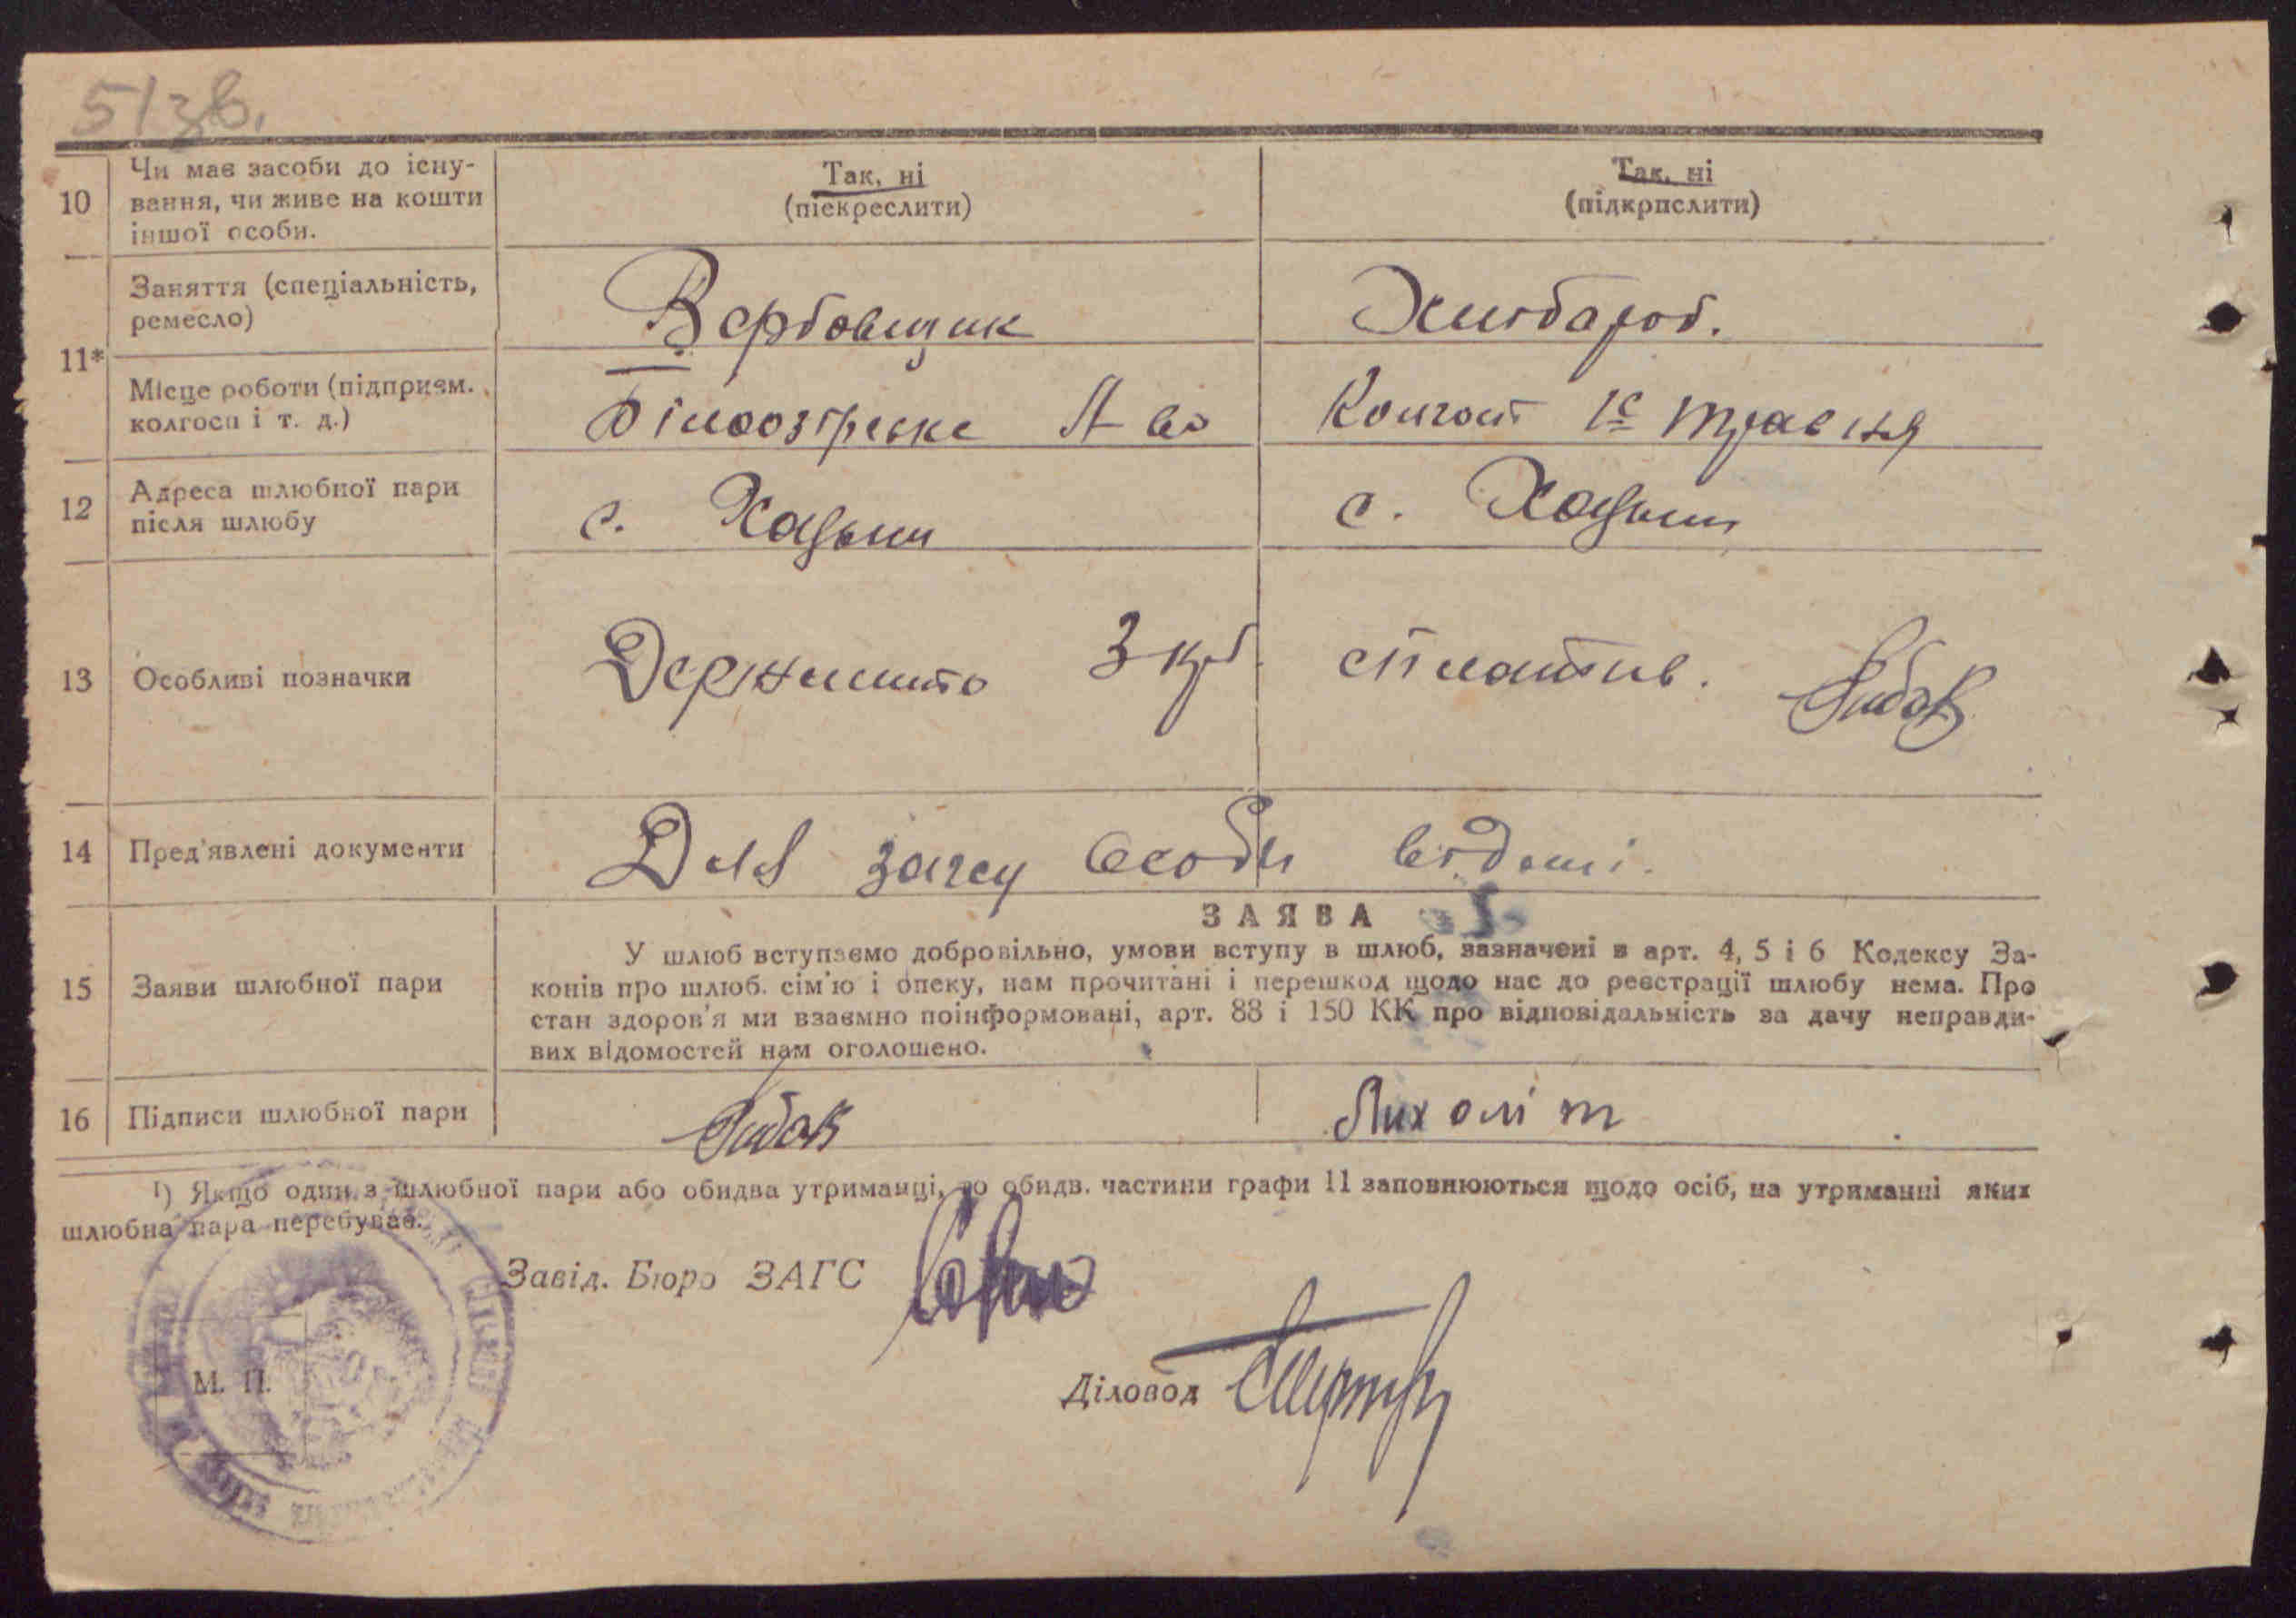 51 зв.
10
Чи має засоби до існу-
вання, чи живе на кошти
іншої особи.
Так, ні
(піекреслити)
Так, ні
(підкрпслити)
11*
Заняття (спеціальність,
ремесло)
Вербовщик
Хлібороб.
Місце роботи (підприєм.
колгосп і т. д.)
Білоозірське
Колгосп 1е травня
12
Адреса шлюбної пари
після шлюбу
с. Хацьки
с. Хацьки
13
Особливі позначки
Держмито 3 крб. сплатив. Рибак
14
Пред'явлені документи
Для загсу особи відомі.
ЗАЯВА
15
Заяви шлюбної пари
У шлюб вступаємо добровільно, умови вступу в шлюб, зазначені в арт. 4, 5 і 6 Кодексу За-
конів про шлюб. сім'ю і опеку, нам прочитані і перешкод щодо нас до реєстрації шлюбу нема. Про
стан здоров'я ми взаємно поінформовані, арт. 88 і 150 КК про відповідальність за дачу неправди-
вих відомостей нам оголошено.
16
Підписи шлюбної пари
Рибак
Лихоліт
1) Якщо один з шлюбної пари або обидва утриманці, то обидв. частини графи 11 заповнюються щодо осіб, на утриманні яких
шлюбна пара перебуває.
Завід. Бюро ЗАГС
М. П.
Діловод